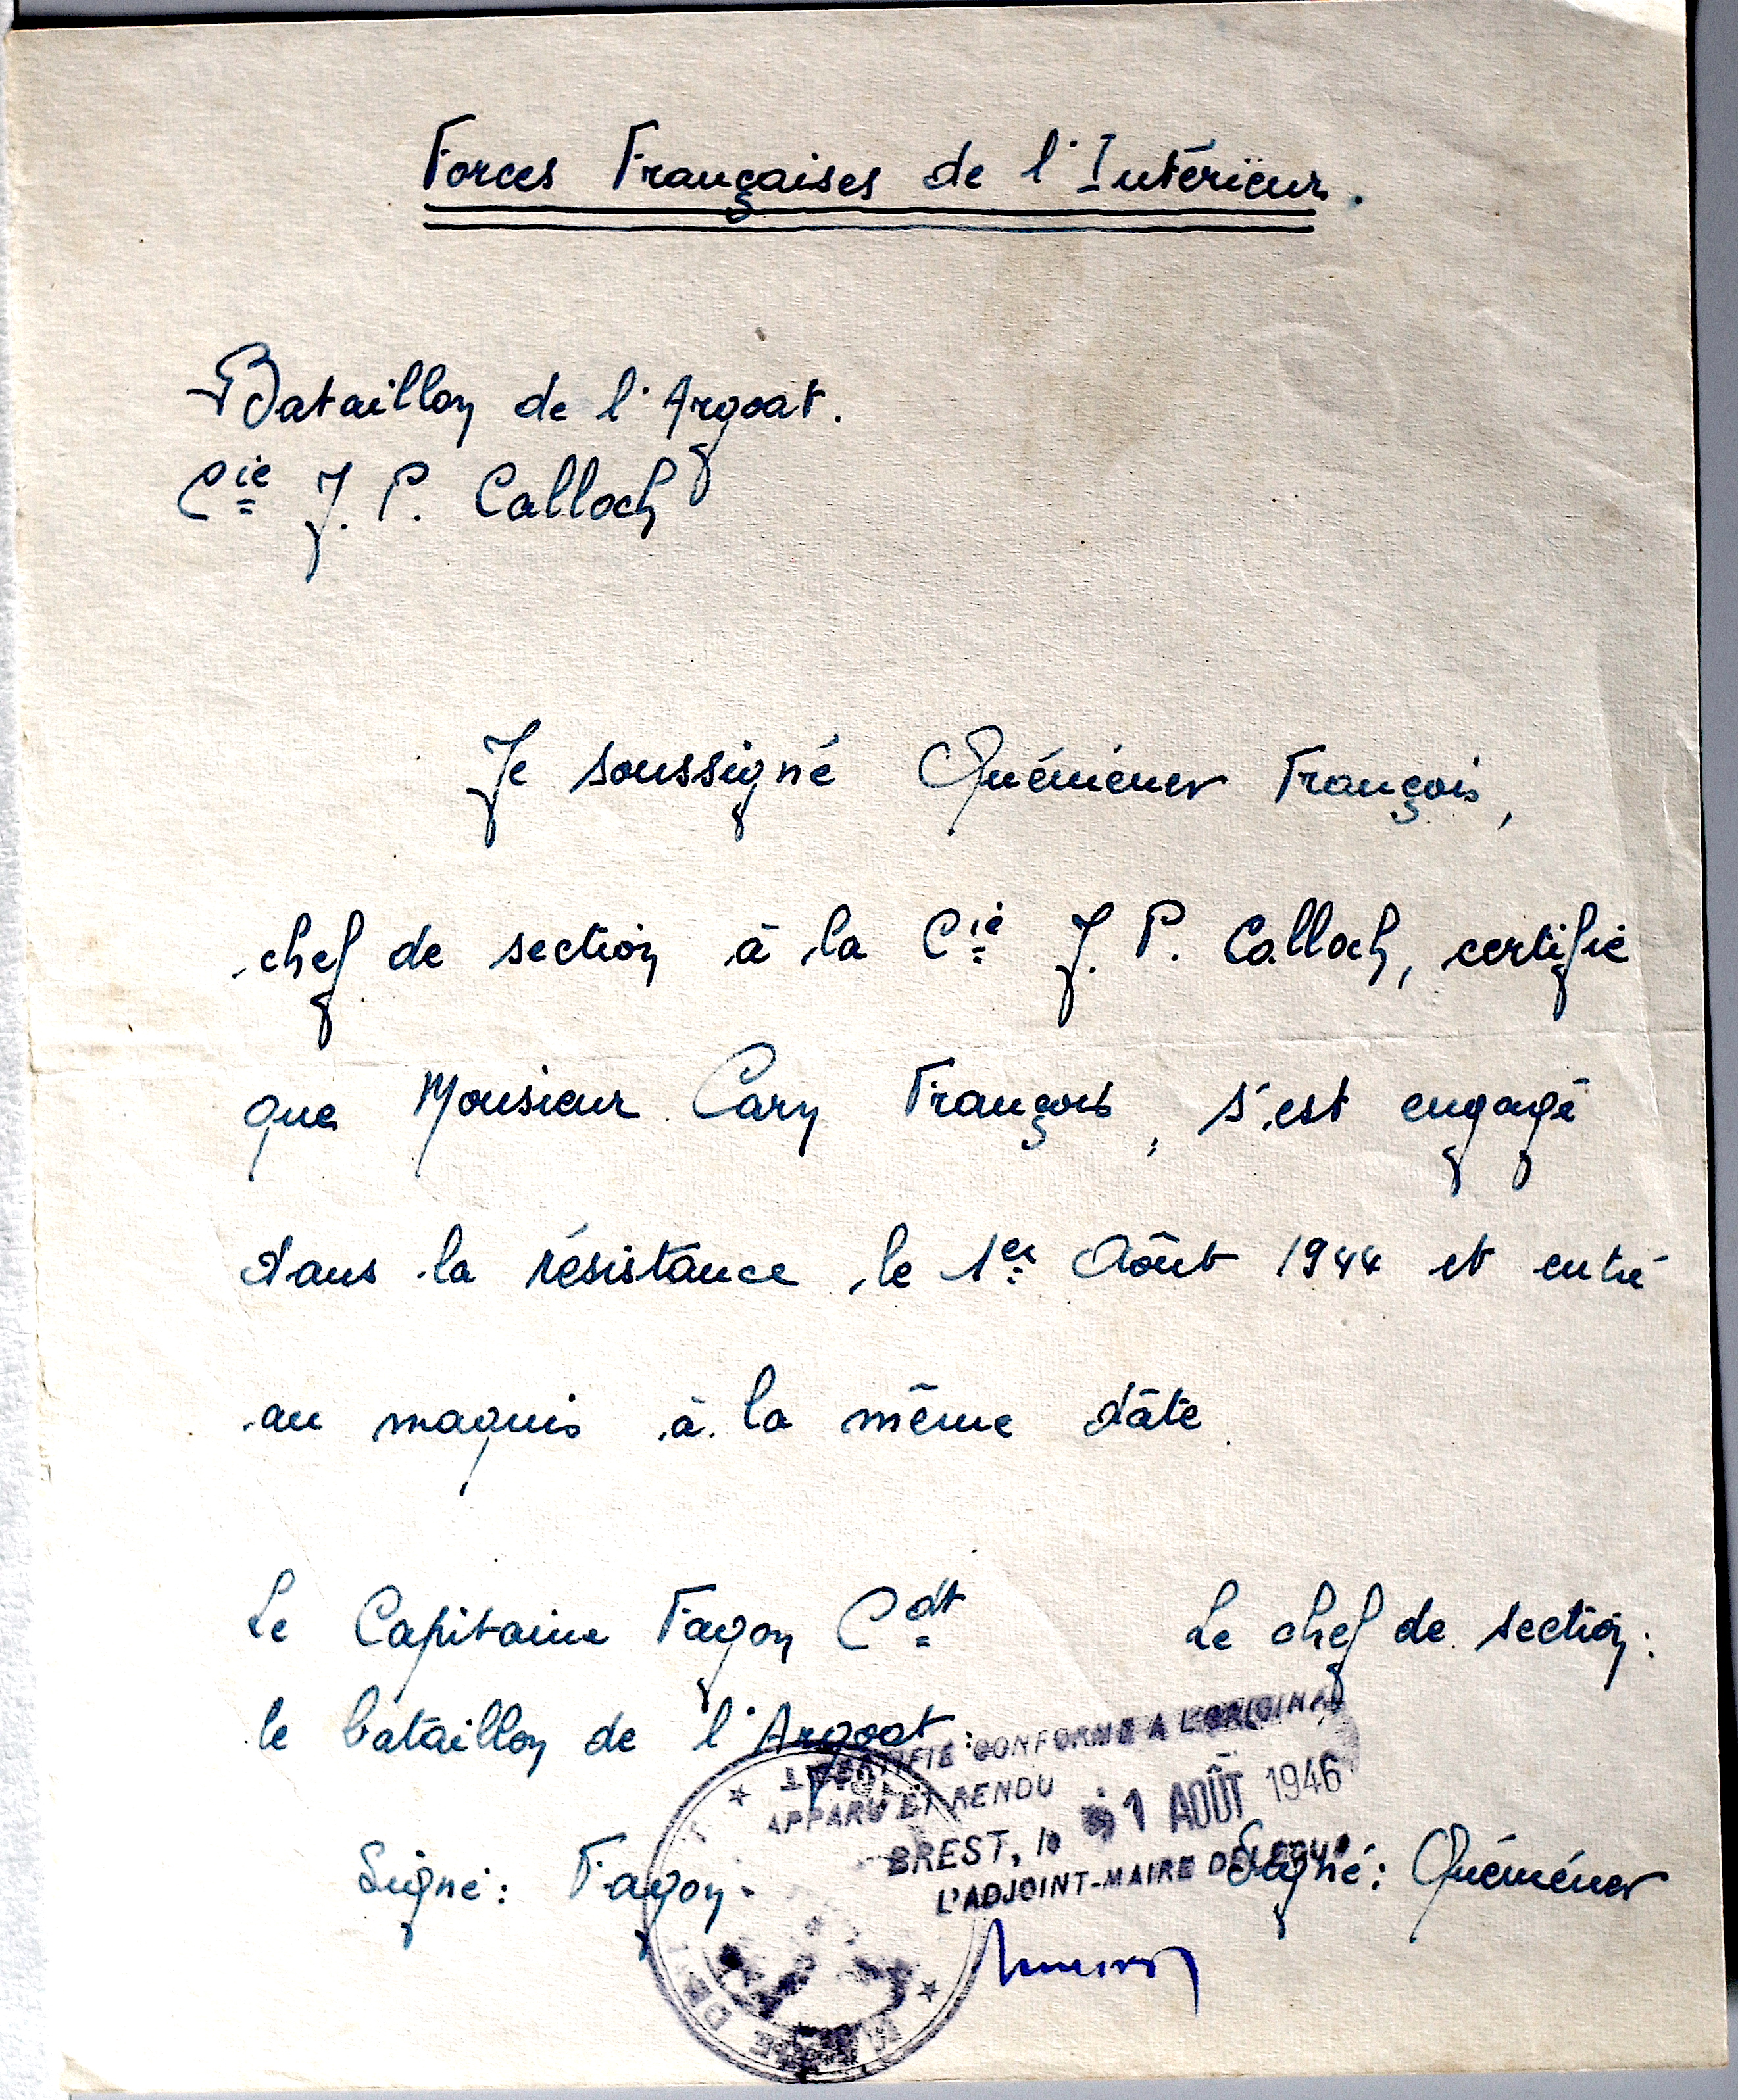 Forces Françaises de l'Intérieur.
Bataillon de l'Argoat.
Cie J. P. Calloch
Je soussigné Quéméner François,
chef de section à la Cie J. P. Calloch, certifie
que Monsieur Cary François, s'est engagé
dans la résistance le 1er Août 1944 et entré
au maquis à la même dâte.
Le Capitaine Fagon Cdt
le bataillon de l'Argoat:
Le chef de section:
CONFORME A L'ORIGINAL
ET RENDU
BREST, le 1 AOÛT 1946
L'ADJOINT-MAIRE DÉLÉGUÉ
Signé: Fagon.
Signé: Quéméner